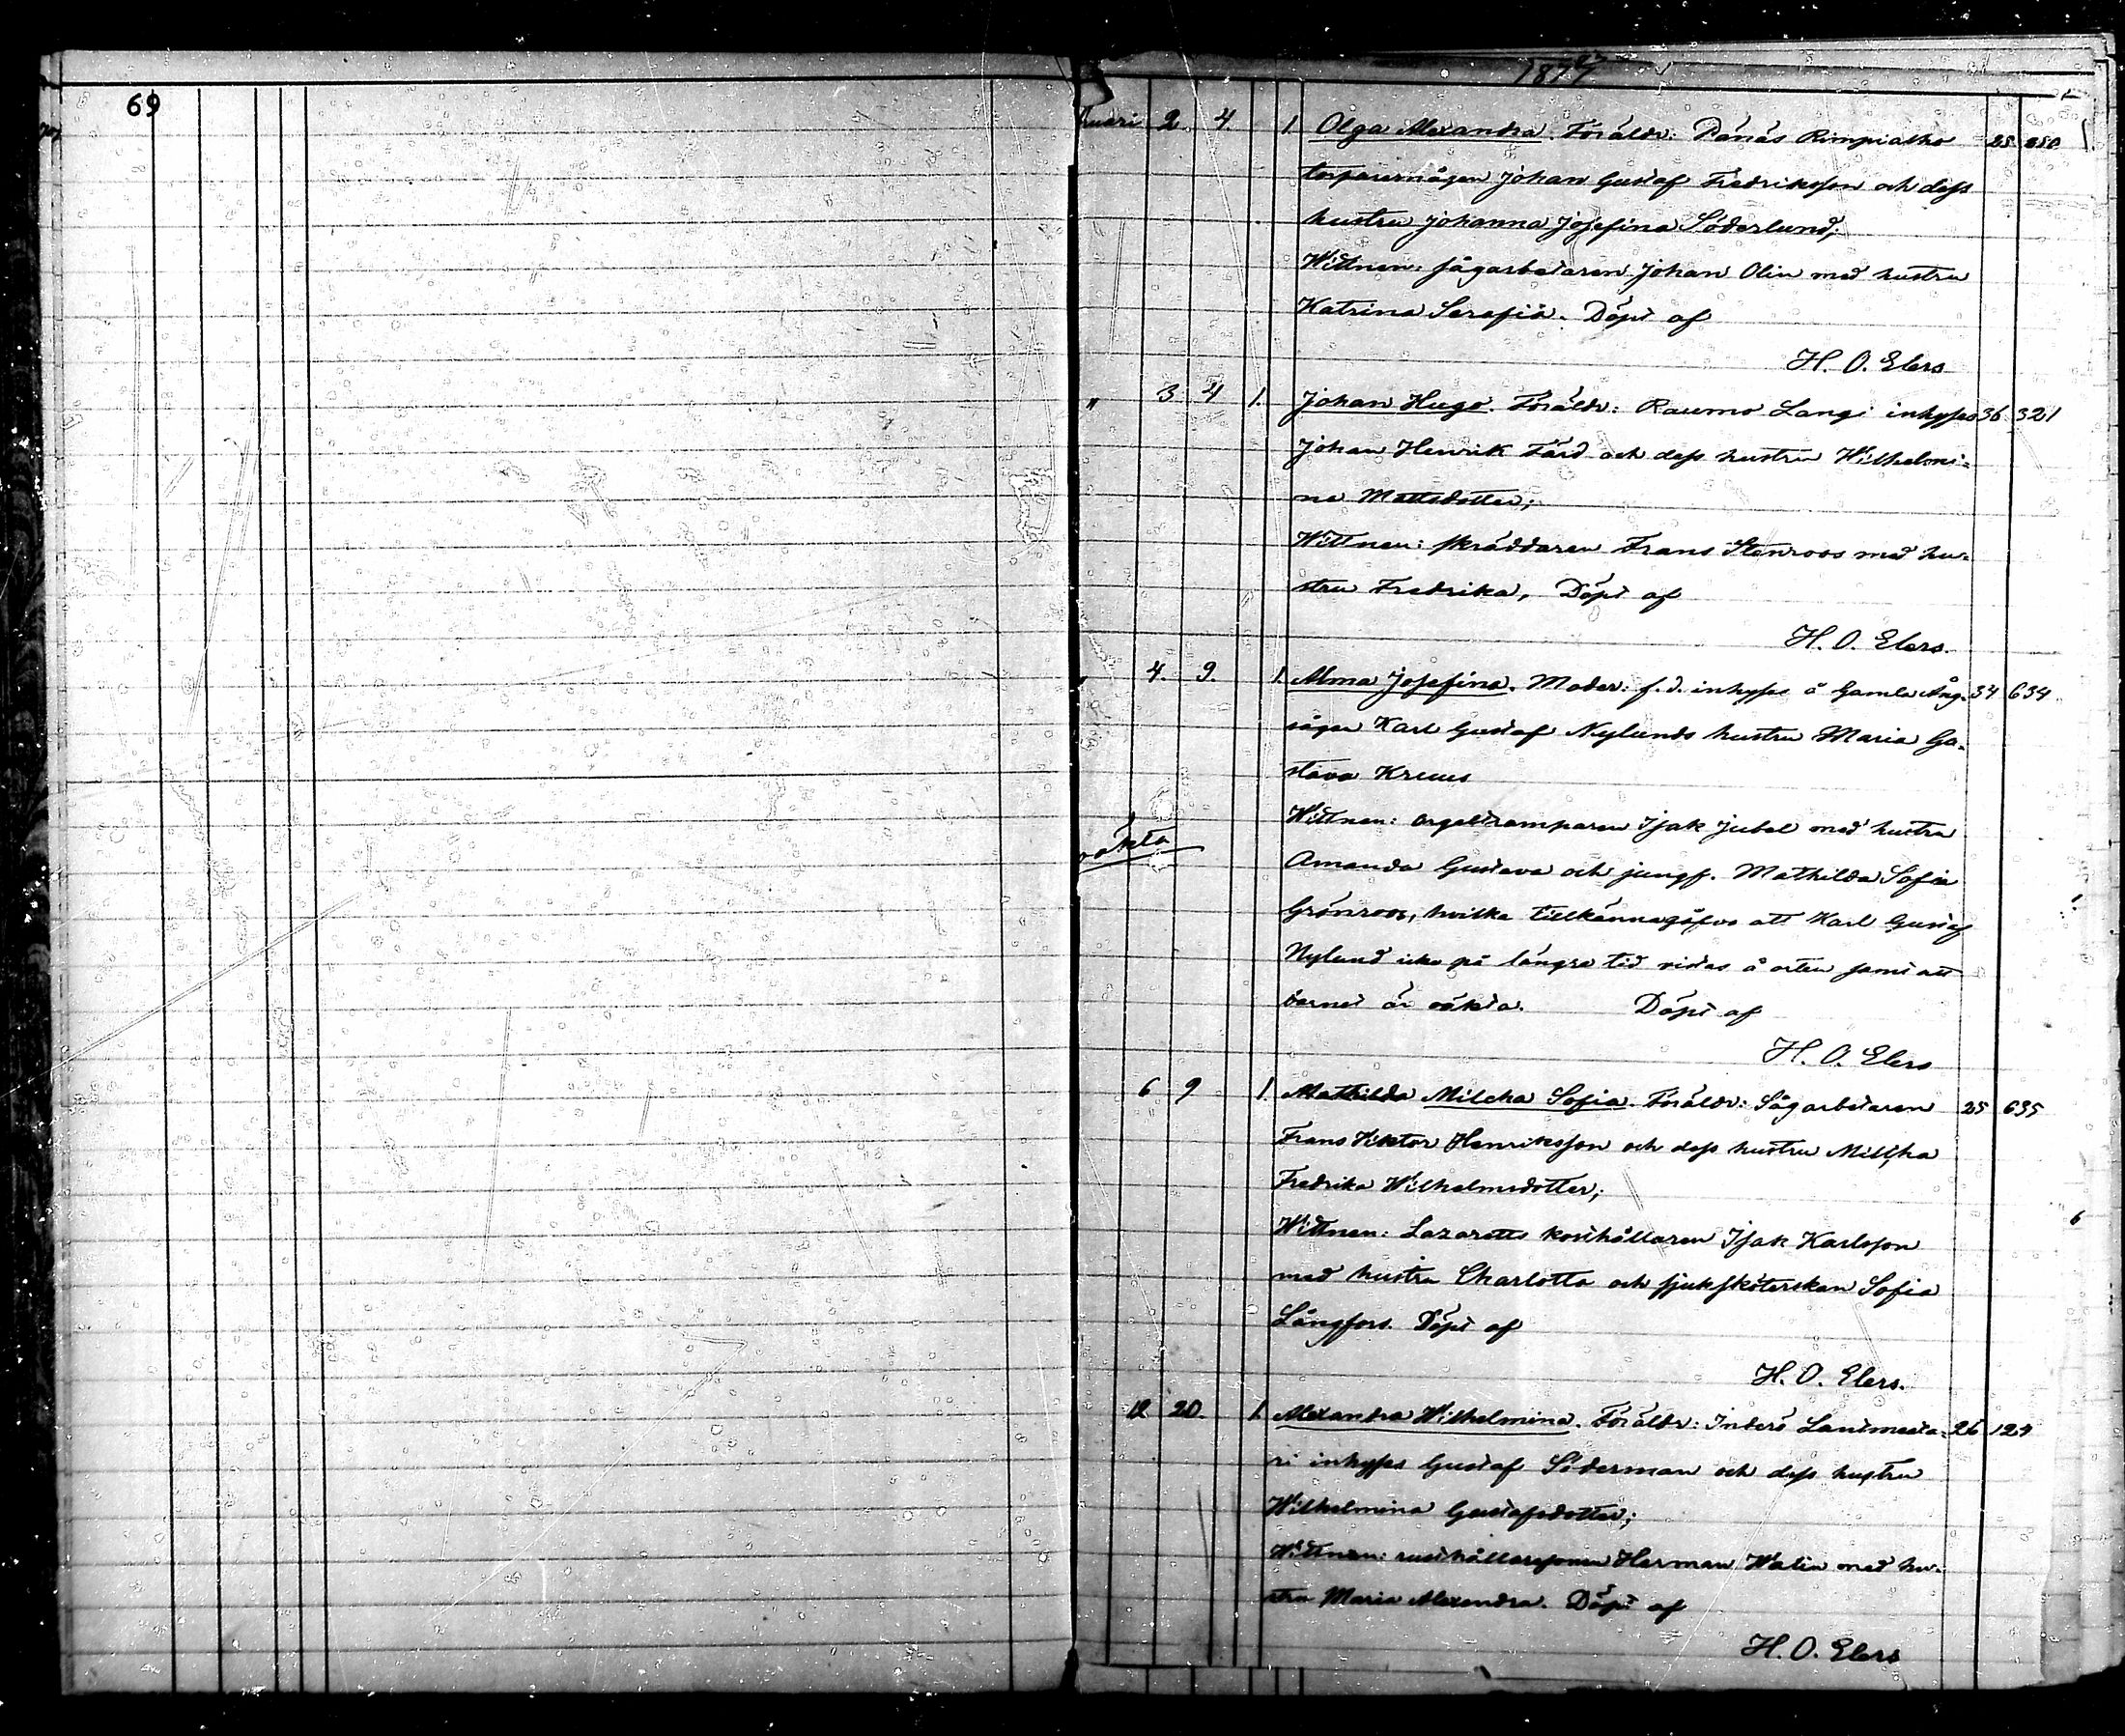 69
1877
nuari 2. 4. 1 Olga Alexandra. Föräldr: Panäs Rimpiakko 25 250
torparemågen Johan Gustaf Fredriksson och dess
hustru Johanna Josefina Söderlund;
Wittnen: sågarbetaren Johan Olin med hustru
Katrina Serafia. Döpt af
H. O. Elers
" 3 4 1. Johan Hugo. Föräldr: Raumo Langi inhyses 36 321
Johan Henrik Färd och dess hustru Wilhelmi-
na Mattsdotter;
Wittnen: skräddaren Frans Stenroos med hu-
stru Fredrika. Döpt af
H. O. Elers.
" 4. 9. 1. Alma Josefina. Moder: f. d. inhyses å Gamla Ång- 34 634
sågen Karl Gustaf Nylunds hustru Maria Gu-
stava Kruus
oäkta
Wittnen: orgeltramparen Isak Jubel med hustru
Amanda Gustava och jungf. Mathilda Sofia
Grönroos, hvilka tillkännagåfvo att Karl Gustaf
Nylund icke på längre tid vistas å orten samt att
barnet är oäkta. Döpt af
H. O. Elers
6 9 1. Mathilda Milcka Sofia. Föräldr: Sågarbetaren 25 635
Frans Viktor Henriksson och dess hustru Milcha
Fredrika Wilhelmsdotter;
6
Wittnen: Lazaretts kosthållaren Isak Karlsson
med hustru Charlotta och sjuksköterskan Sofia
Långfors. Döpt af
H. O. Elers.
12 20. 1. Alexandra Wilhelmina. Föräldr: Inderö Lantmesta- 26 124
ri inhyses Gustaf Söderman och dess hustru
Wilhelmina Gustafsdotter;
Wittnen: rusthållaresonen Herman Walin med hu-
stru Maria Alexandra. Döpt af
H. O. Elers